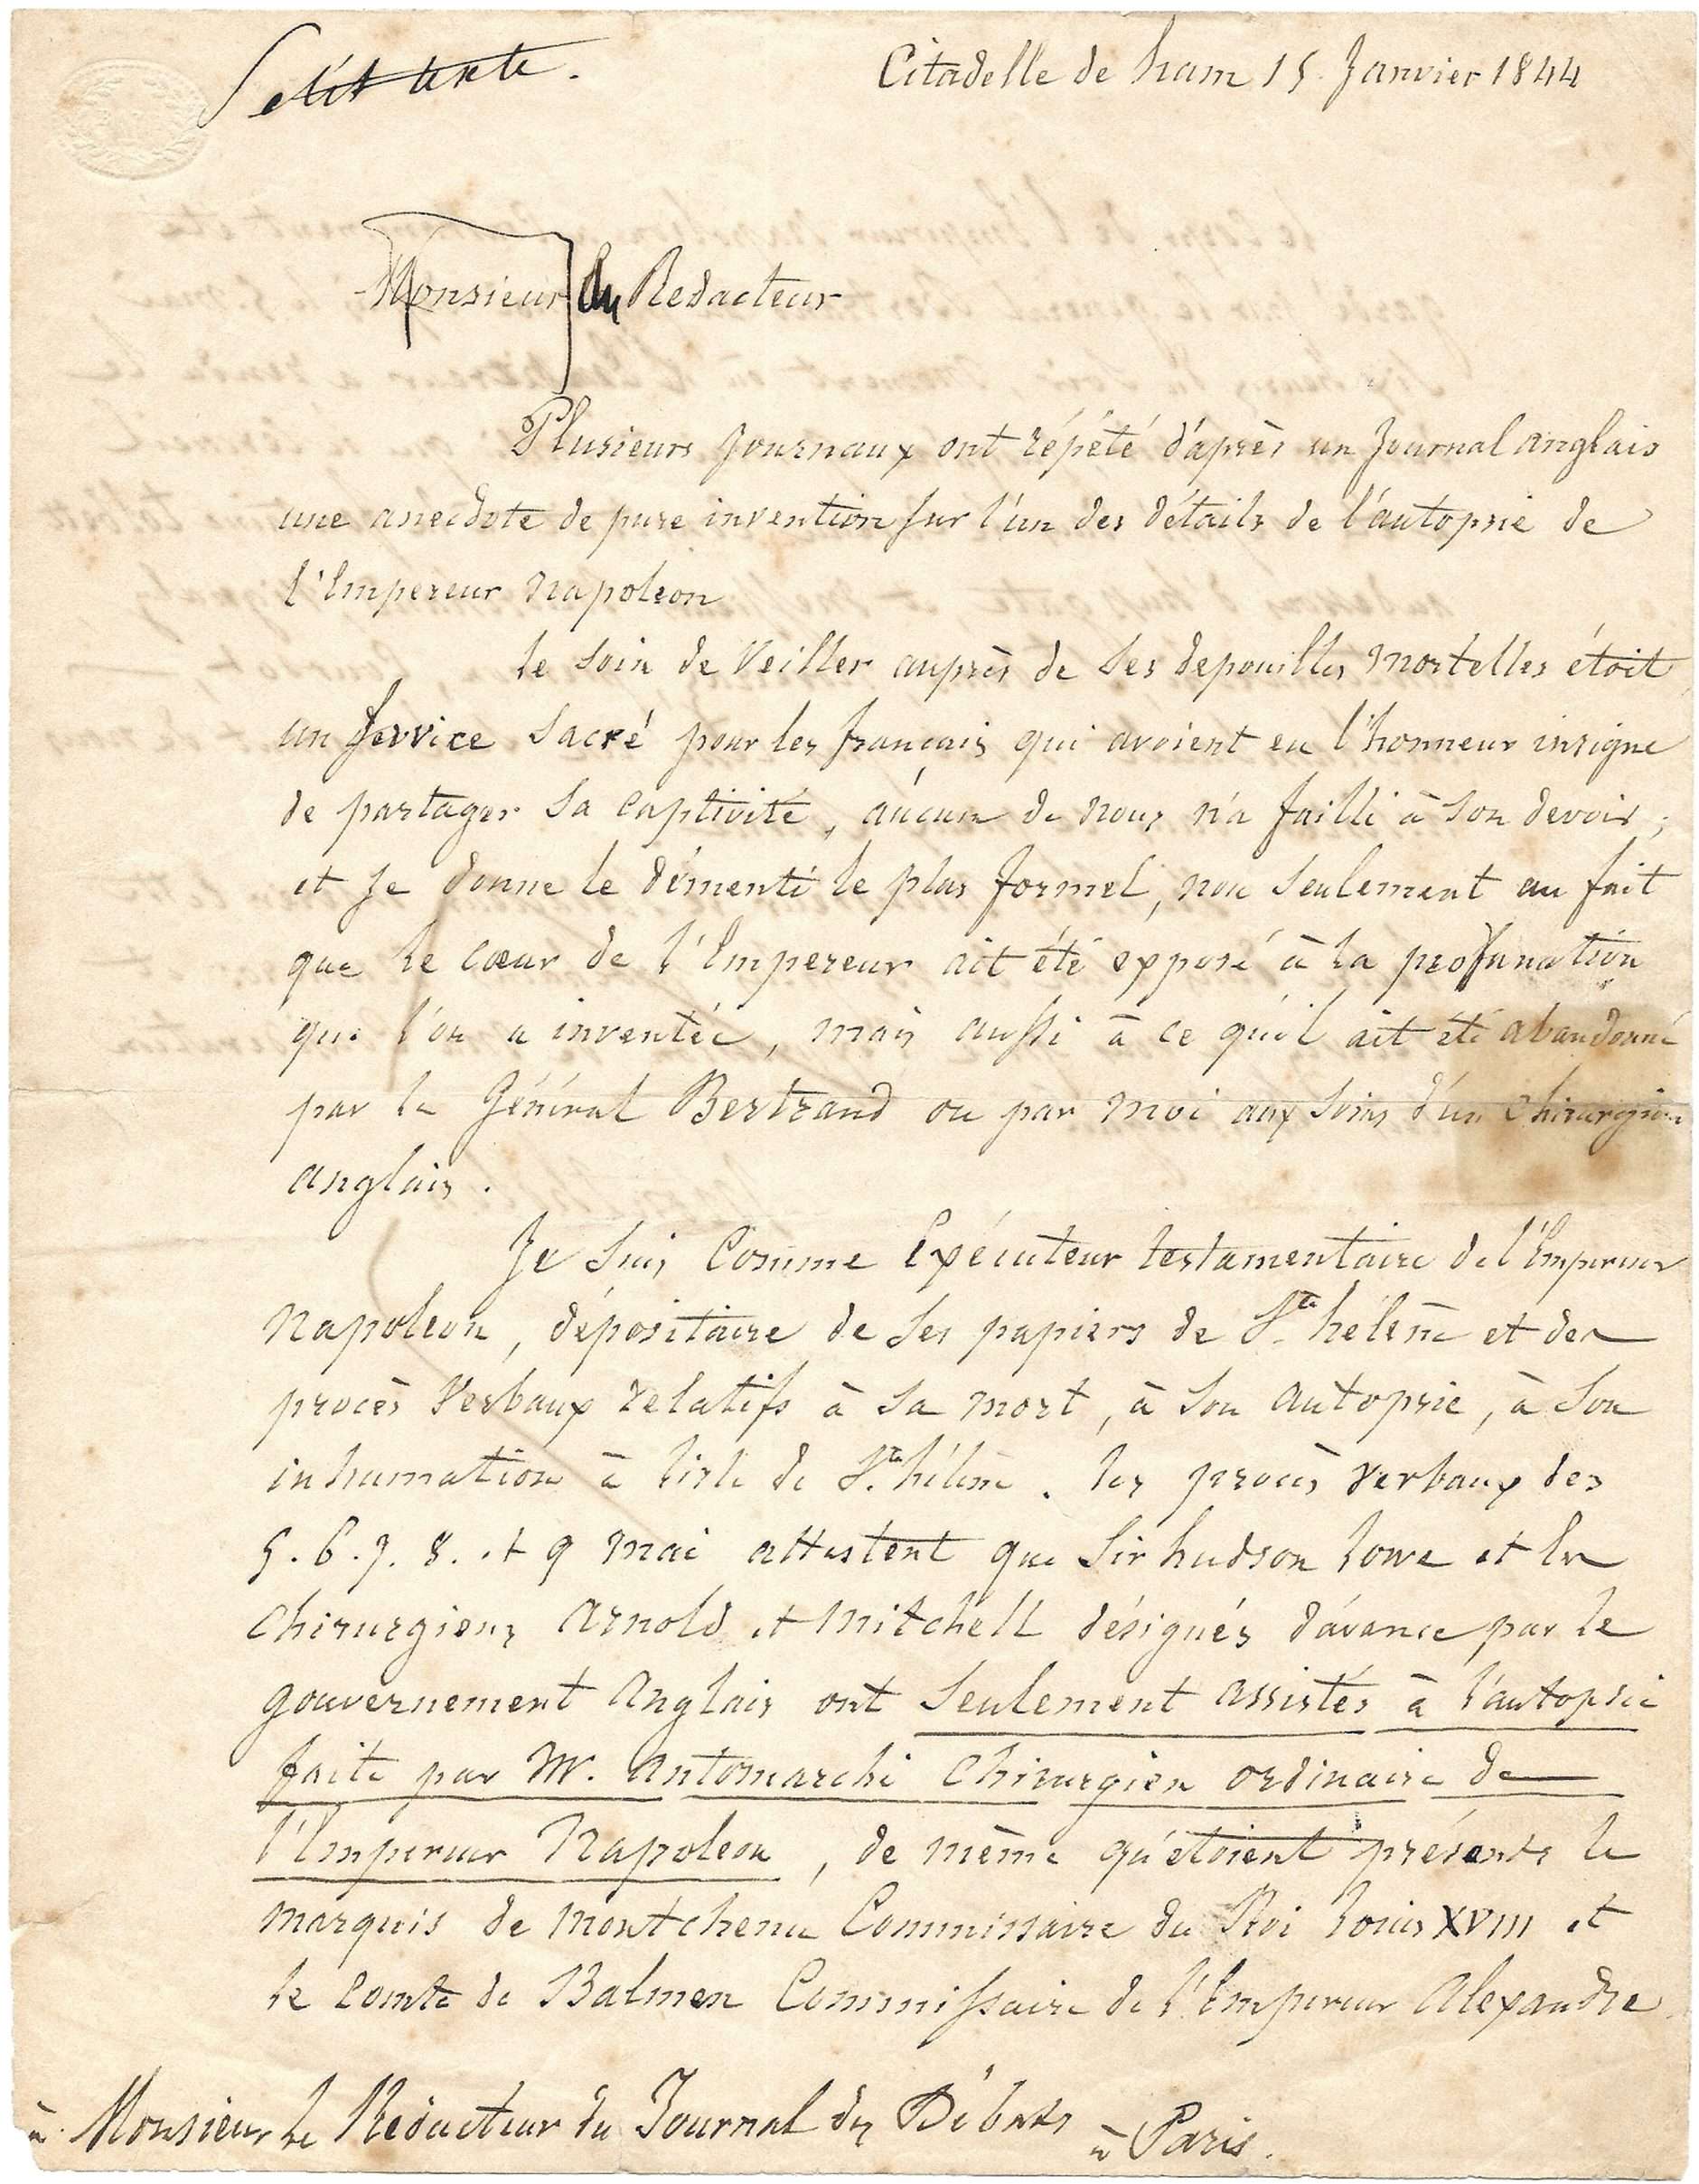 Petit texte.
Citadelle de ham 15 Janvier 1844
Monsieur du Redacteur
Plusieurs Journaux ont répété d'après un Journal anglais
une anecdote de pure invention sur l'un des détails de l'autopsie de
l'Empereur Napoleon
le soin de Veiller auprès de ses depouilles mortelles étoit
un service sacré pour les français qui avoient eu l'honneur insigne
de partager sa captivité, aucun de nous n'a failli à son devoir;
et Je donne le démenti le plus formel, non seulement au fait
que le cœur de l'Empereur ait été exposé à la profanation
que l'on a inventée, mais aussi à ce qu'il ait été abandonné
par le Général Bertrand ou par moi aux soins d'un chirurgien
anglais.
Je suis Comme Exécuteur testamentaire de l'Empereur
Napoleon, dépositaire de ses papiers de Ste hélène et des
procès Verbaux relatifs à sa mort, à son autopsie, à son
inhumation à l'isle de Ste hélène. les procès Verbaux des
5. 6. 7. 8. et 9 mai attestent que Sir hudson Lowe et les
Chirurgiens Arnold et Mitchell désignés d'avance par le
gouvernement Anglais ont seulement assistés à l'autopsie
faite par Mr. Antomarchi Chirurgien ordinaire de
l'Empereur Napoleon, de même qu'étoient présents le
marquis de montchenu Commissaire du Roi Louis XVIII et
le Comte de Balmen Commissaire de l'Empereur Alexandre
à Monsieur le Rédacteur du Journal des Débats à Paris.